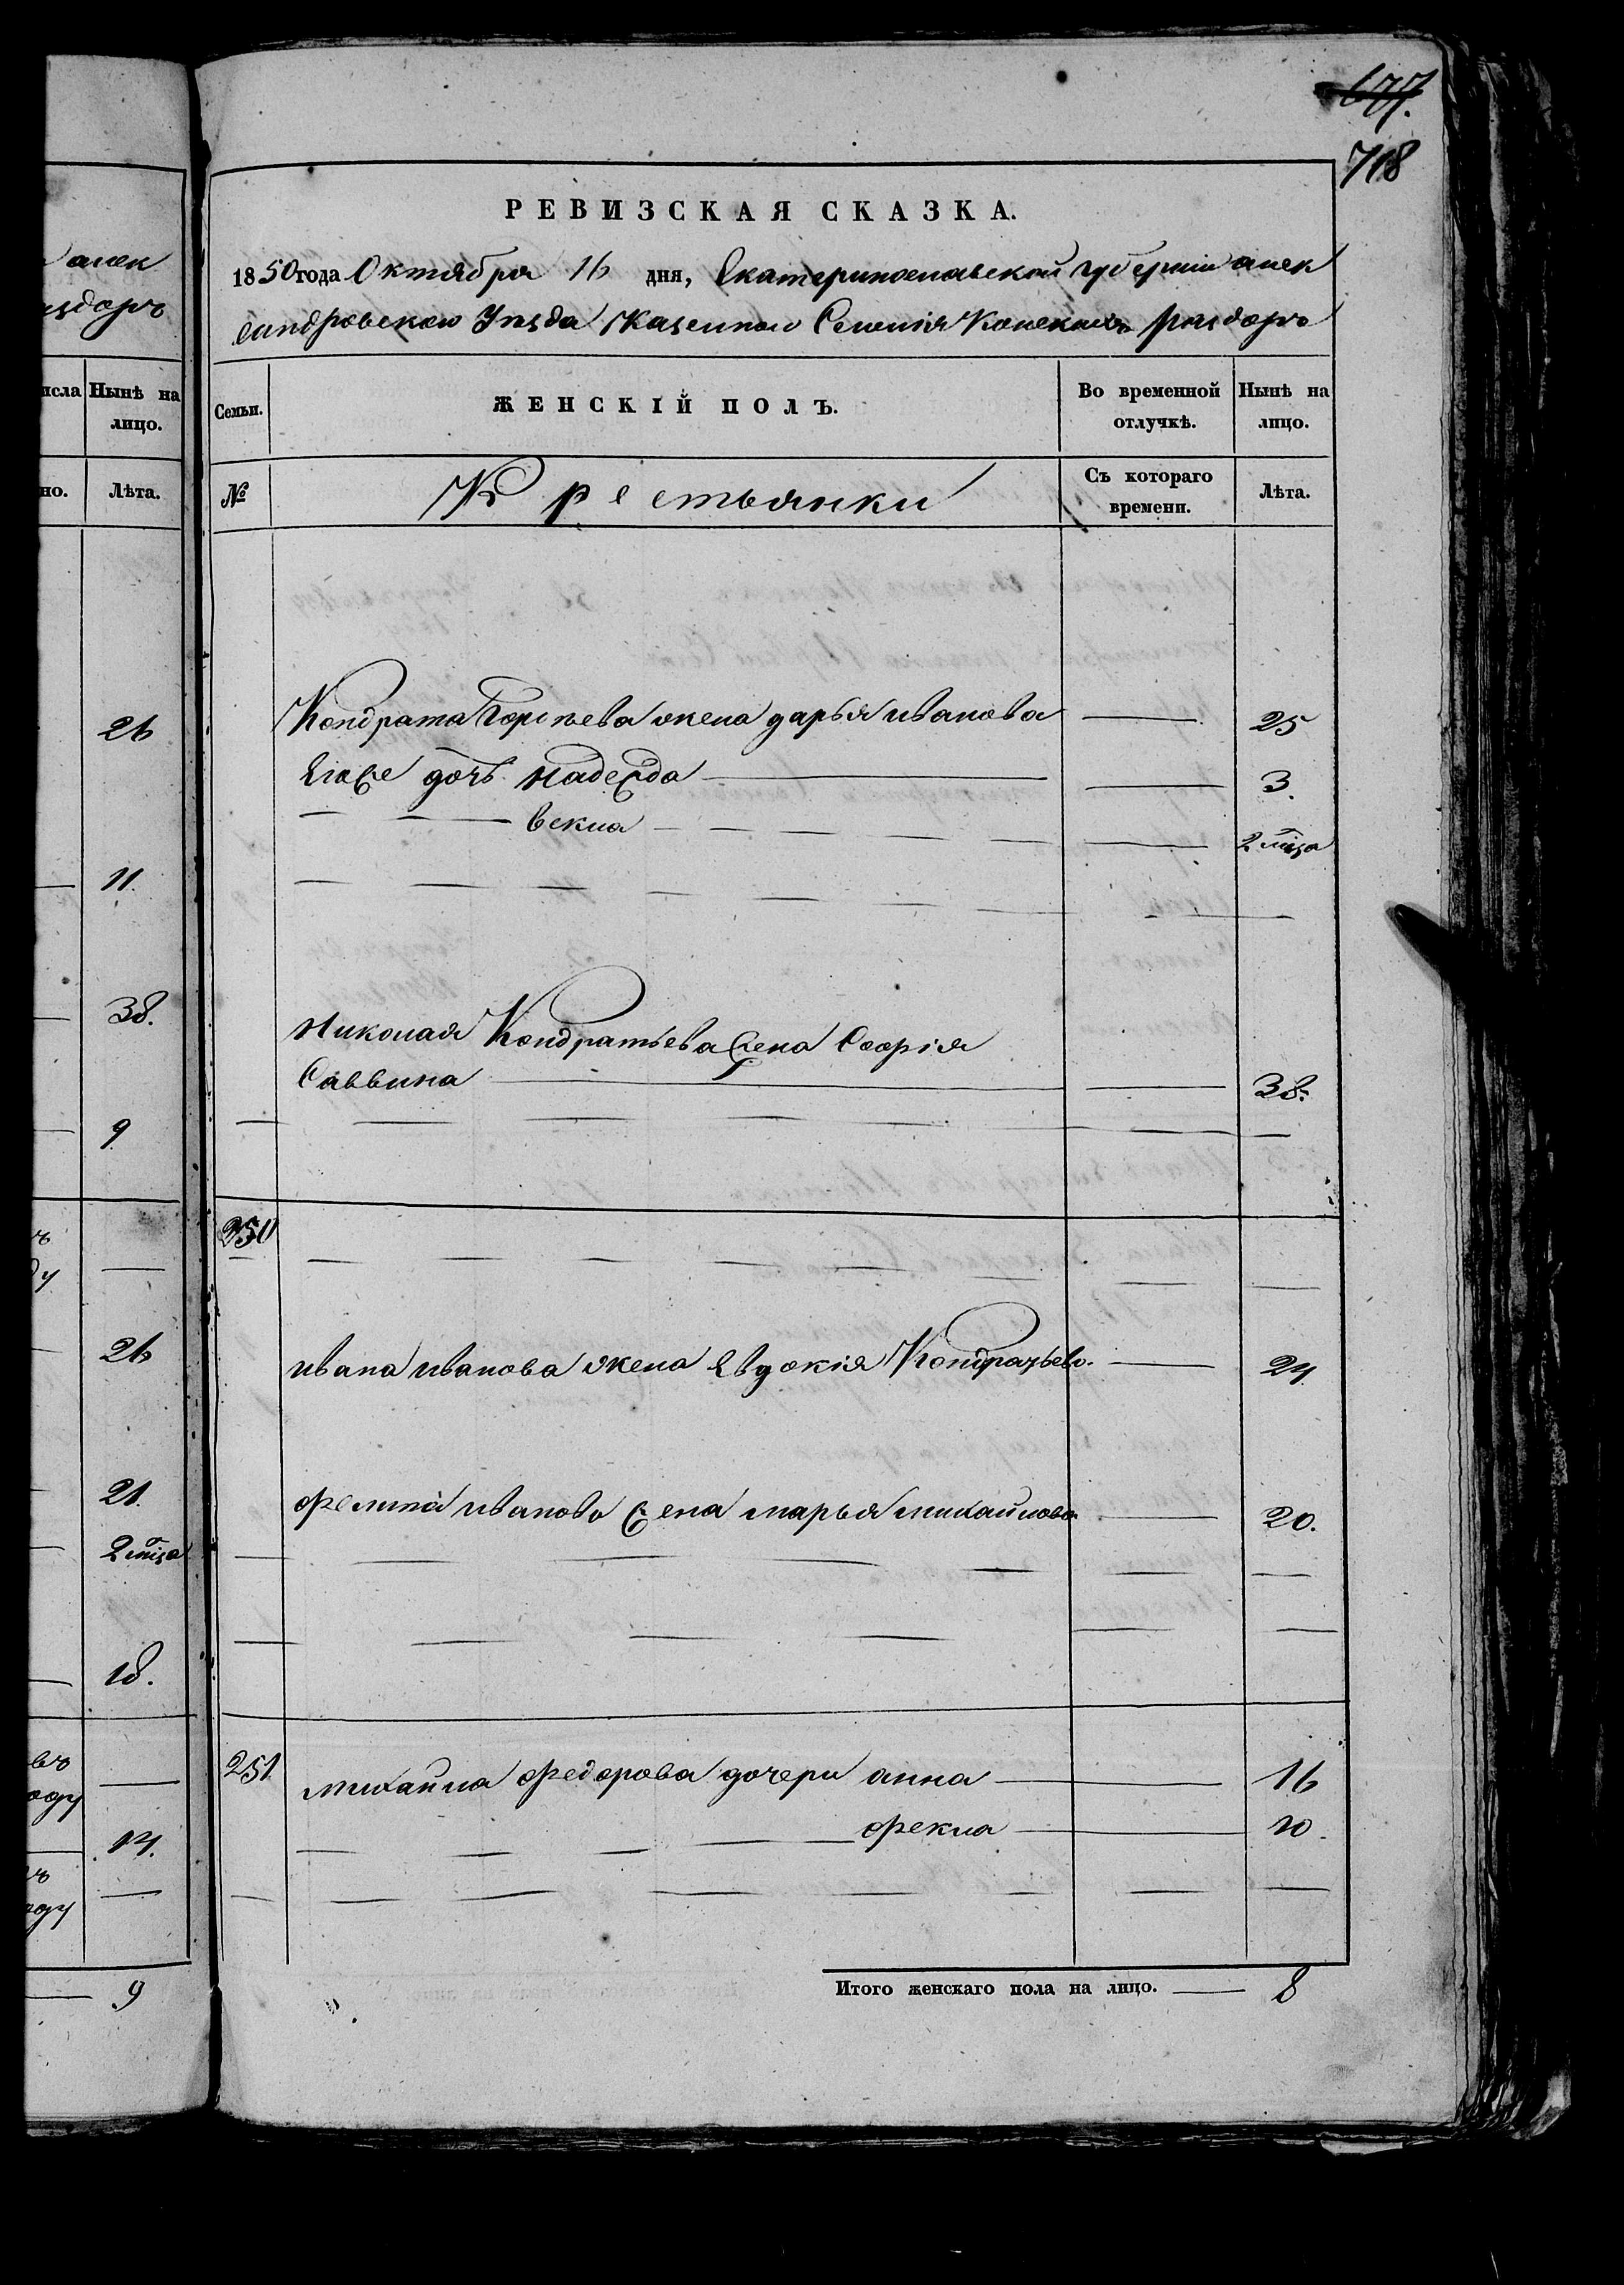 677.
718
РЕВИЗСКАЯ СКАЗКА.
1850 года Октября 16 дня, Екатеринославской губерніи алек
сандровскаго Уѣзда Казеннаго Селенія Конскихъ Раздоръ
Семьи. ЖЕНСКІЙ ПОЛЪ. Во временной отлучкѣ. Нынѣ на лицо.
№ Крестьянки Съ котораго времени. Лѣта.
Кондрата жена дарья иванова 25
Его же дочь надежда 3.
векла 2 мца
николая Кондратьева жена Софія
Саввина 38.
250
ивана иванова жена Евдокія Кондратьева 24
иванова жена марья михайлова 20.
251 михайла федорова дочери анна 16
фекла 10.
Итого женскаго пола на лицо. 8
алек
здоръ
исла Нынѣ на лицо.
но. Лѣта.
26
11.
38.
9
ду
26
21.
2 мца
18.
въ
году
14.
году
9